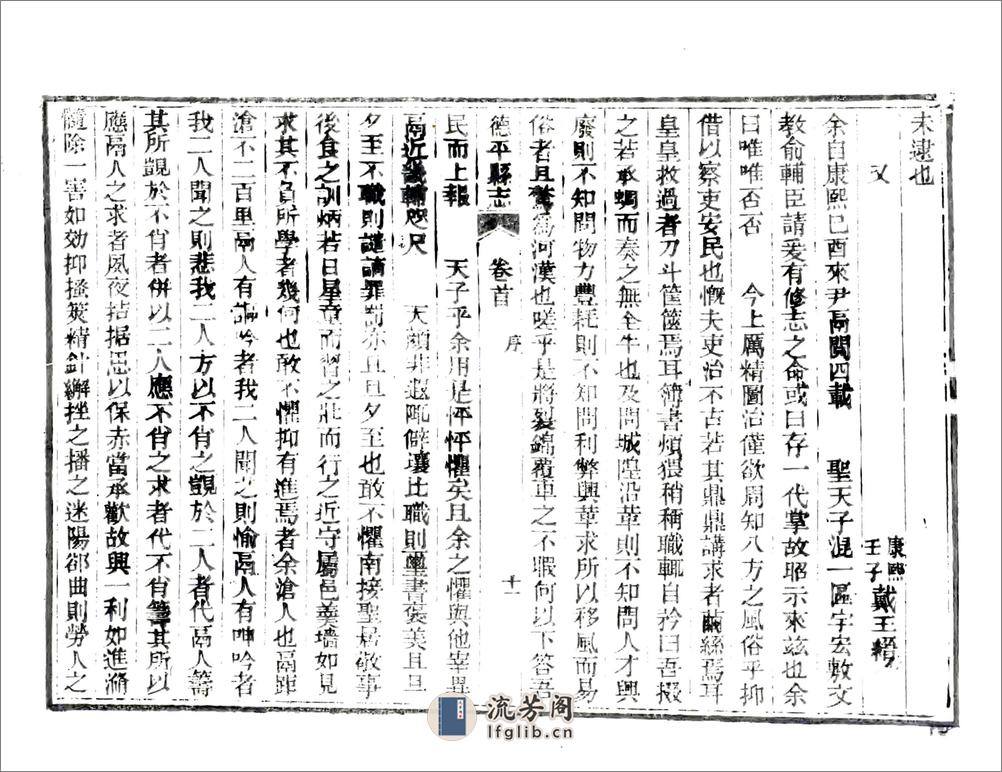 未逮也
又
康熙壬子戴王縉
余自康熙己酉來尹鬲閱四載 聖天子混一區宇宏敷文
教俞輔臣請爰有修志之命或曰存一代掌故昭示來茲也余
曰唯唯否否 今上厲精圖治僅欲周知八方之風俗乎抑
借以察吏安民也慨夫吏治不古若其鼎鼎講求者繭絲焉耳
皇皇救過者刀斗筐篋焉耳簿書煩猥稍稱職輒自矜曰吾掇
之若承蜩而奏之無全牛也及問城隍沿革則不知問人才興
廢則不知問物力豐耗則不知問利弊興革求所以移風而易
俗者且驚為河漢也嗟乎是將裂錦覆車之不暇何以下答吾
德平縣志 卷首 序 十一
民而上報 天子乎余用是怦怦懼矣且余之懼與他宰異
鬲近畿輔咫尺 天顏非遐陬僻壤比職則璽書褒美且旦
夕至不職則譴謫罪 亦且旦夕至也敢不懼南接聖居敬事
後食之訓炳若日星童而習之壯而行之近守屬邑羹墻如見
求其不負所學者幾何也敢不懼抑有進焉者余滄人也鬲距
滄不二百里鬲人有謳吟者我二人聞之則愉鬲人有呻吟者
我二人聞之則悲我二人方以不肖之覬於二人者代鬲人籌
其所覬於不肖者併以二人應不肖之求者代不肖籌其所以
應鬲人之求者夙夜拮据思以保赤當承歡故興一利如進滫
髓除一害如効抑搔箴精針繲挫之播之迷陽郤曲則勞人之
流芳阁
lfglib.cn